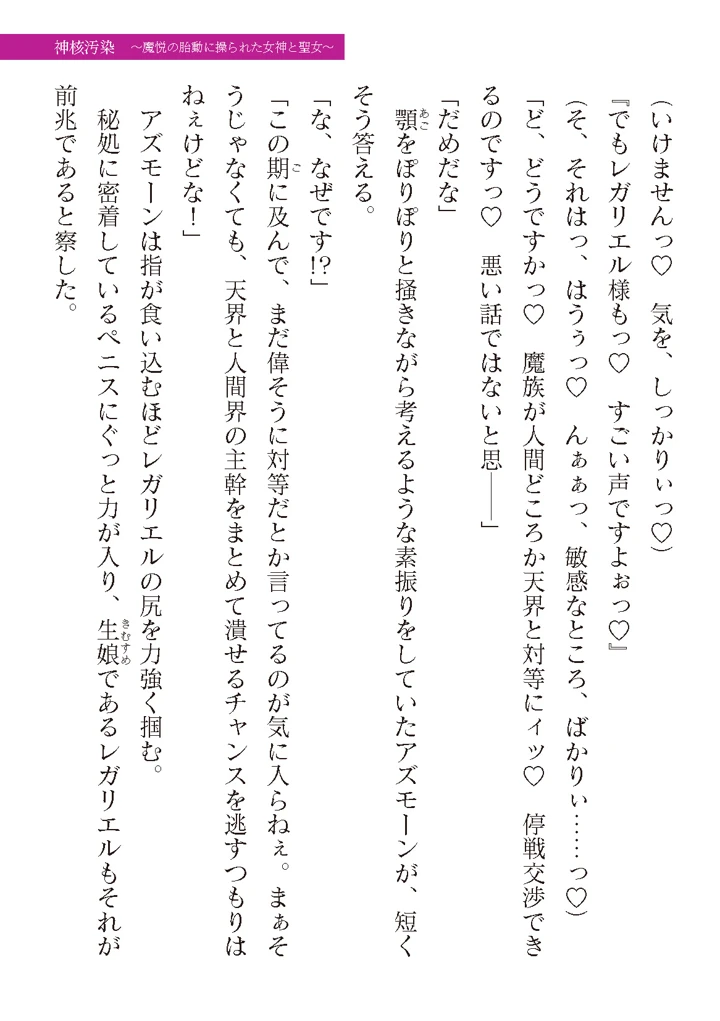 神核汚染 ～魔悦の胎動に操られた女神と聖女～
（いけませんっ♡　気を、しっかりぃっ♡）
『でもレガリエル様もっ♡　すごい声ですよぉっ♡』
（そ、それはっ、はうぅっ♡　んぁぁっ、敏感なところ、ばかりぃ……っ♡）
「ど、どうですかっ♡　魔族が人間どころか天界と対等にィッ♡　停戦交渉でき
るのですっ♡　悪い話ではないと思――」
「だめだな」
顎をぽりぽりと掻きながら考えるような素振りをしていたアズモーンが、短く
そう答える。
「な、なぜです!?」
「この期に及んで、まだ偉そうに対等だとか言ってるのが気に入らねぇ。まぁそ
うじゃなくても、天界と人間界の主幹をまとめて潰せるチャンスを逃すつもりは
ねぇけどな！」
アズモーンは指が食い込むほどレガリエルの尻を力強く掴む。
秘処に密着しているペニスにぐっと力が入り、生娘であるレガリエルもそれが
前兆であると察した。